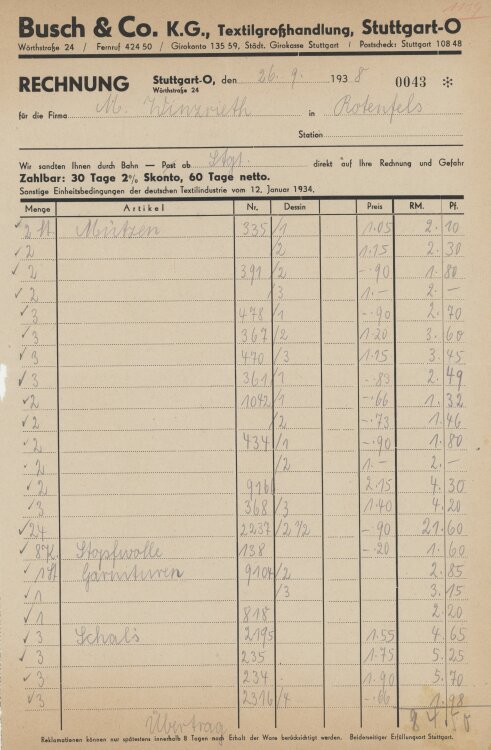 1159
Busch & Co. K.G., Textilgroßhandlung, Stuttgart-O
Wörthstraße 24 / Fernruf 424 50 / Girokonto 135 59, Städt. Girokasse Stuttgart / Postscheck: Stuttgart 108 48
RECHNUNG Stuttgart-O, den 26. 9. 1938 0043 *
Wörthstraße 24
für die Firma M. Winzrieth in Rotenfels
Station
Wir sandten Ihnen durch Bahn — Post ab Stgt. direkt auf Ihre Rechnung und Gefahr
Zahlbar: 30 Tage 2% Skonto, 60 Tage netto.
Sonstige Einheitsbedingungen der deutschen Textilindustrie vom 12. Januar 1934.
Menge Artikel Nr. Dessin Preis RM. Pf.
2 St. Mützen 335 /1 1.05 2. 10
2 /2 1.15 2. 30
2 391 /2 -.90 1. 80
2 /3 1.— 2. —
3 478 /1 -.90 2. 70
3 367 /2 1.20 3. 60
3 470 /3 1.15 3. 45
3 361 /1 -.83 2. 49
2 1042 /1 -.66 1. 32
2 /2 -.73 1. 46
2 434 /1 -.90 1. 80
2 /2 1.— 2. —
2 916 2.15 4. 30
3 368 /3 1.40 4. 20
24 2237 /2 1/2 -.90 21. 60
8 K. Stopfwolle 138 -.20 1. 60
1 St Garnituren 9104 /2 2. 85
1 /3 3. 15
1 818 2. 20
3 Schals 2195 1.55 4. 65
3 235 1.75 5. 25
3 234 1.90 5. 70
3 2316 /4 -.66 1. 98
Übertrag 84.50
Reklamationen können nur spätestens innerhalb 8 Tagen nach Erhalt der Ware berücksichtigt werden. Beiderseitiger Erfüllungsort Stuttgart.